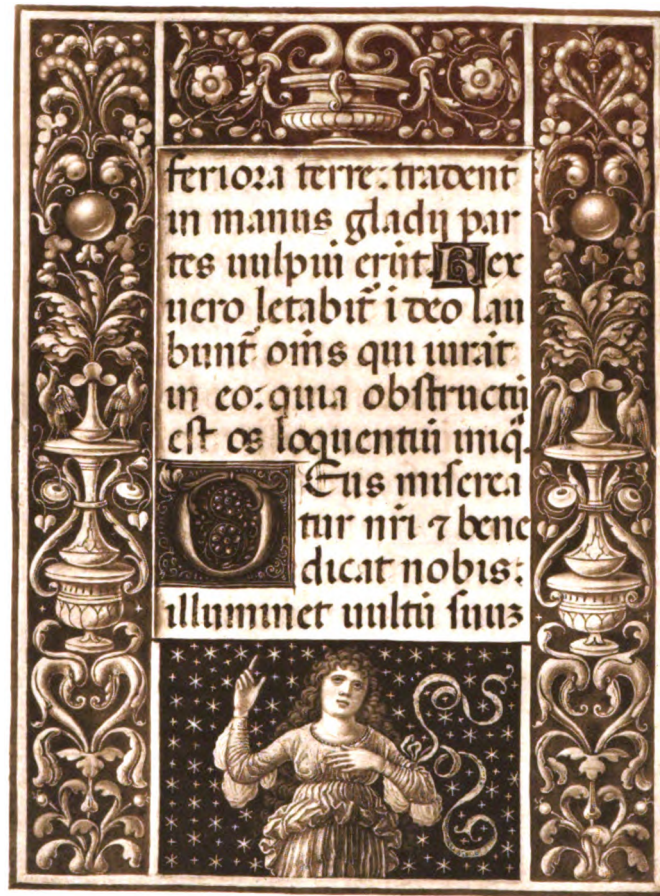 feriora terre: tradent
in manus gladij par
tes uulpiũ erũt. Rex
uero letabit̃ i deo lau
bunt̃ om̃s qui iurãt
in eo: quia obstructũ
est os loquentiũ iniq̃.
Deus miserea
tur nr̃i ⁊ bene
dicat nobis:
illuminet uultũ suuꝫ